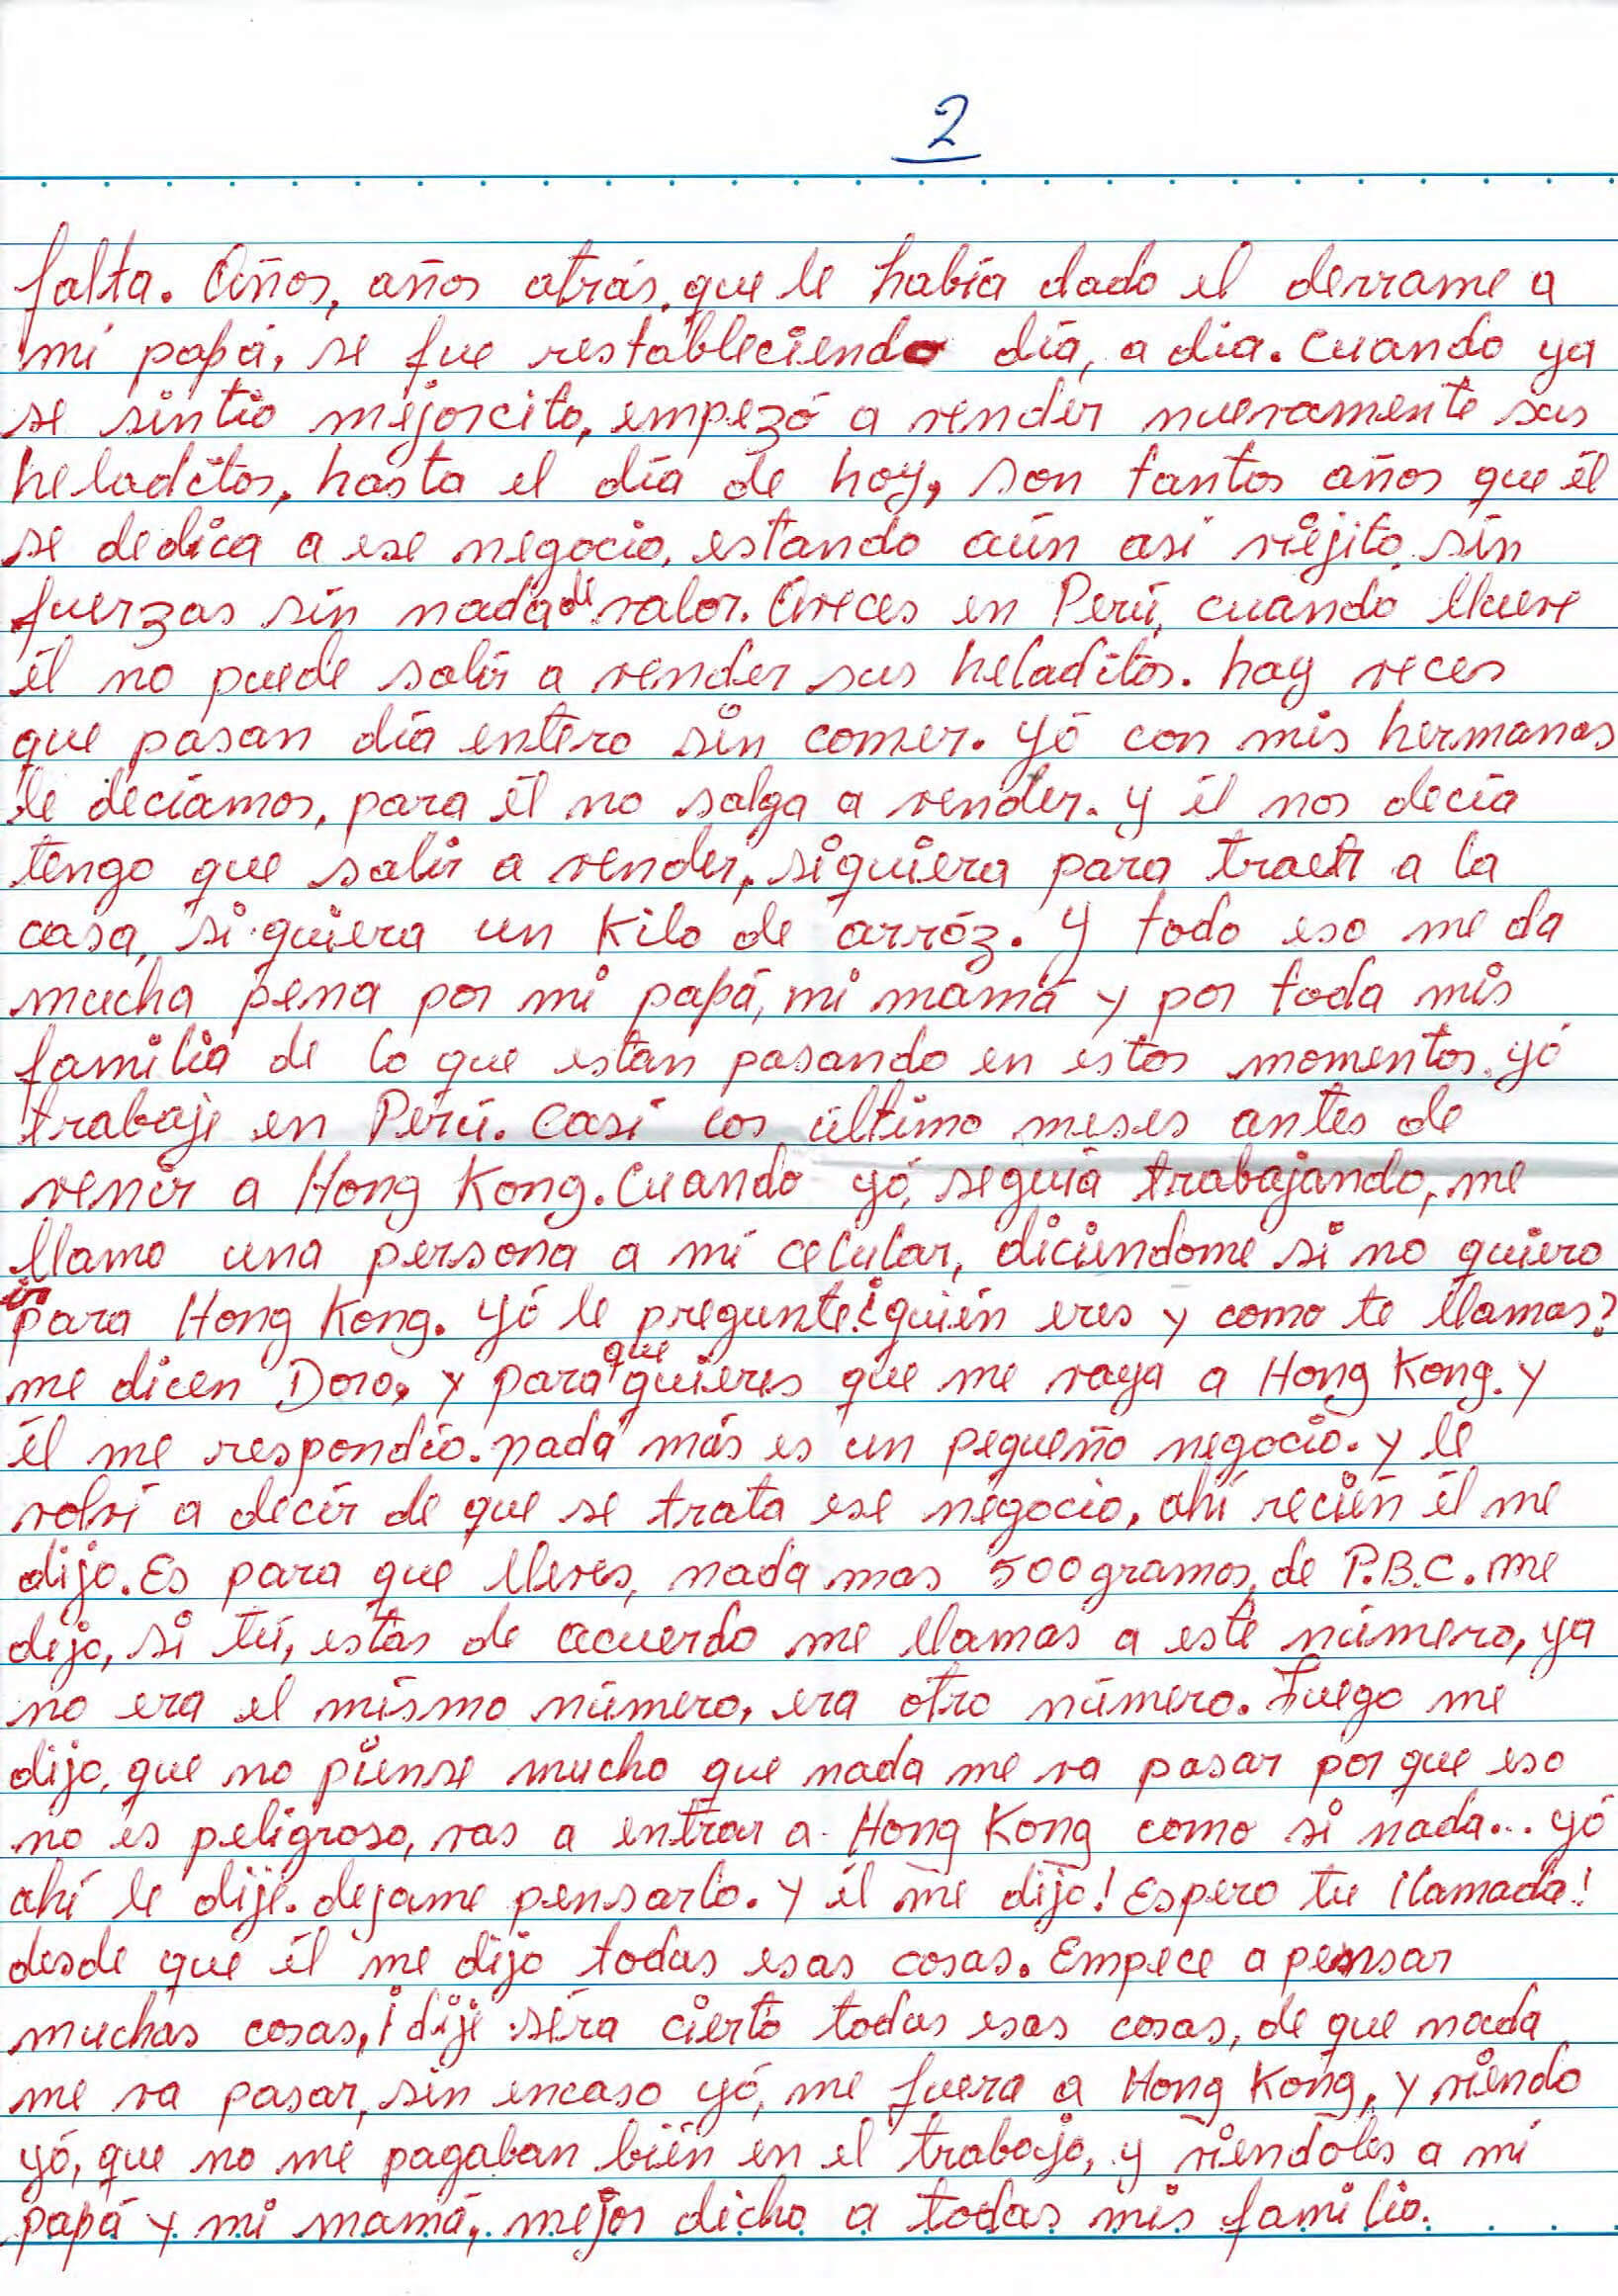 2
falta. Años, años atrás, que le había dado el derrame a
mi papá, se fue restableciendo día, a dia. Cuando ya
se sintio mejorcito, empezó a vender nuevamente sus
heladitos, hasta el día de hoy, son tantos años que él
se dedica a ese negocio, estando aún asi viejito sin
fuerzas sin nada de valor. Aveces en Perú, cuando llueve
él no puede salir a vender sus heladitos. hay veces
que pasan día entero sin comer. yó con mis hermanas
le decíamos, para él no salga a vender. y él nos decía
tengo que salir a vender, siquiera para traer a la
casa, si quiera un kilo de arróz. Y todo eso me da
mucha pena por mi papá, mi mamá y por toda mis
familia de lo que estan pasando en estos momentos. yó
trabaje en Perú. Casi los último meses antes de
venir a Hong Kong. Cuando yó, seguía trabajando, me
llamo una persona a mi celular, diciéndome si no quiero
ir para Hong Kong. Yó le pregunte ¿quién eres y como te llamas?
me dicen Doro, y para que quieres que me vaya a Hong Kong. Y
él me respondio. nada más es un pequeño negocio. y le
volví a decir de que se trata ese negocio, ahí recién él me
dijo. Es para que lleves, nada mas 500 gramos, de P.B.C. me
dijo, si tú, estás de acuerdo me llamas a este número, ya
no era el mismo número, era otro número. Luego me
dijo, que no piense mucho que nada me va pasar por que eso
no es peligroso, vas a entrar a Hong Kong como si nada... yó
ahí le dije. dejame pensarlo. Y él me dijo! Espero tu llamada!
desde que él me dijo todas esas cosas. Empece a pensar
muchas cosas, ¡dije séra cierto todas esas cosas, de que nada
me va pasar, sin encaso yó, me fuera a Hong Kong, y viendo
yó, que no me pagaban bién en el trabajo, y viendoles a mi
papá y mi mamá, mejor dicho a todas mis familia.